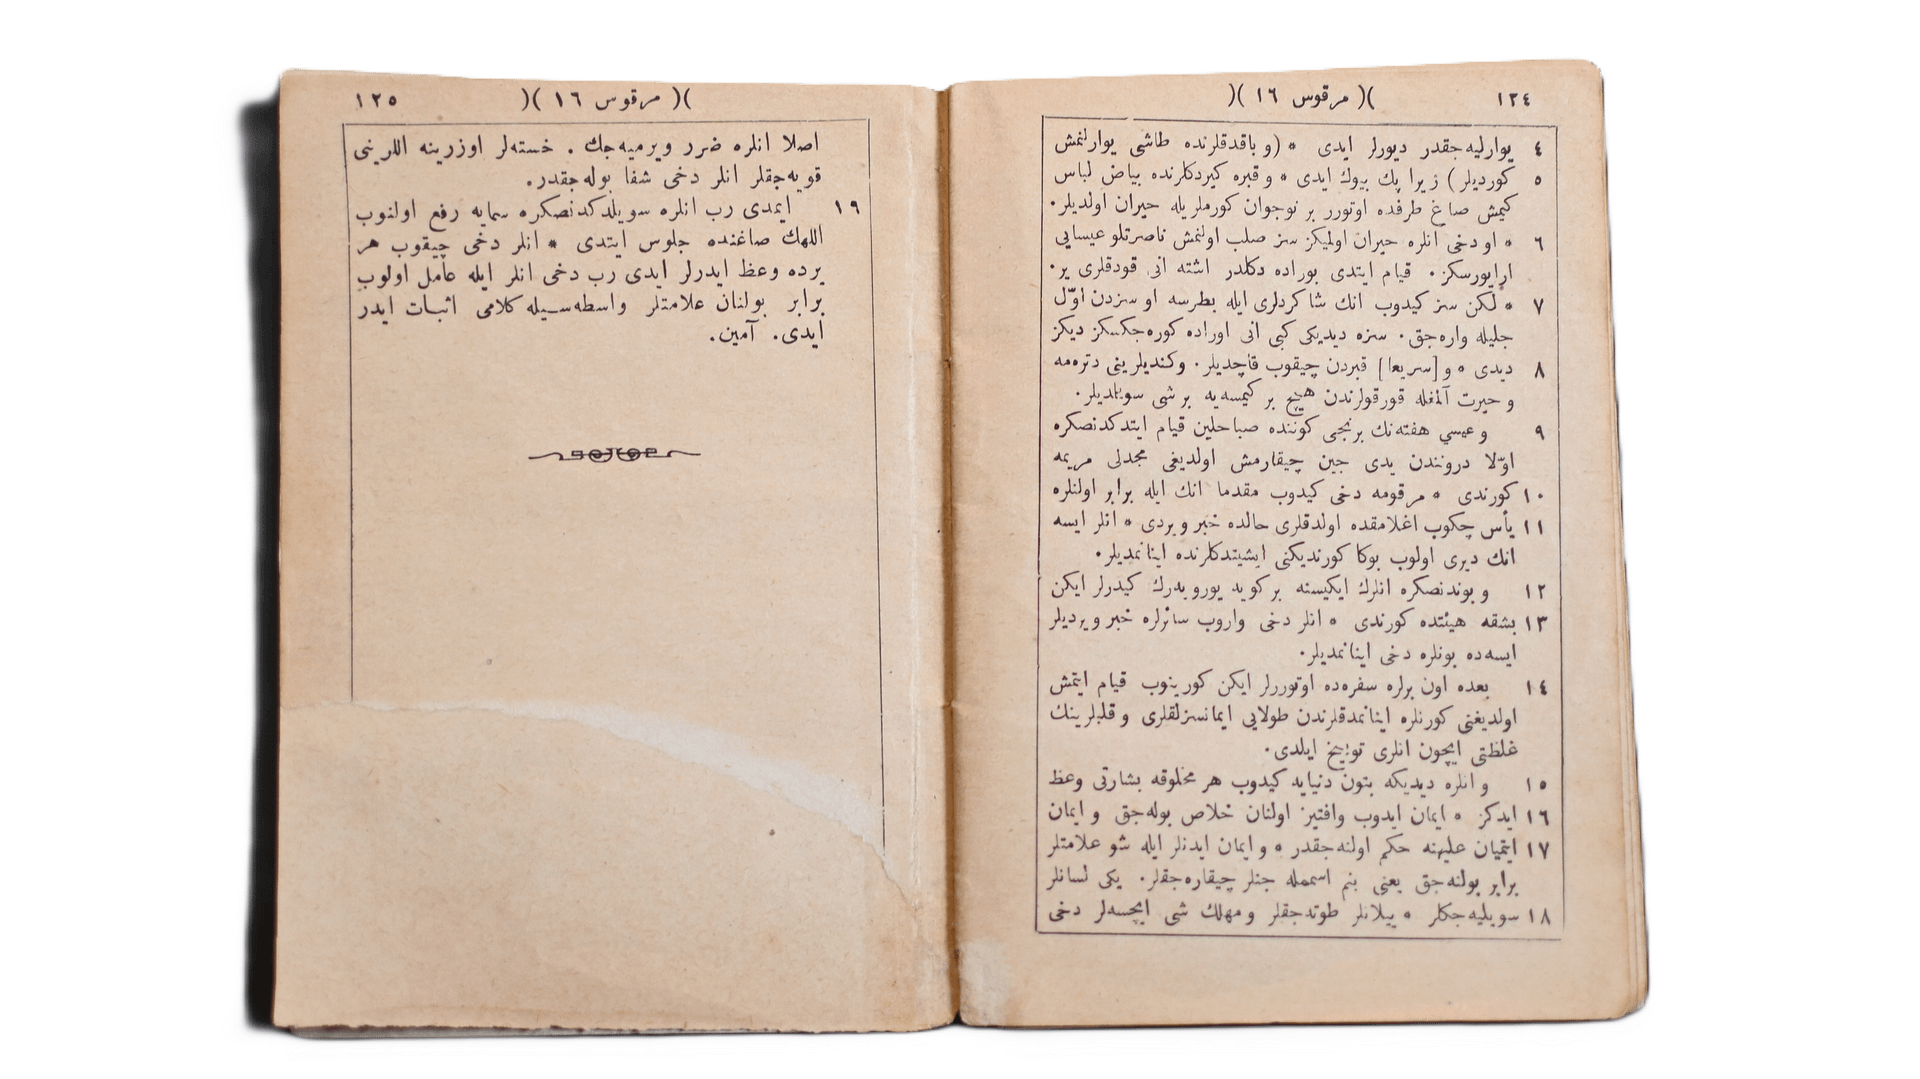 ١٢٤ )( مرقوس ١٦ )(
٤ يوارليه‌جقدر ديورلر ايدى * (و باقدقلرنده طاشى يوارلنمش
٥ كورديلر) زيرا پك بيوك ايدى * و قبره كيردكلرنده بياض لباس
كيمش صاغ طرفده اوتورر بر نوجوان كورملريله حيران اولديلر.
٦ * او دخى انلره حيران اولميكز سز صلب اولنمش ناصرتلو عيسايى
ارايورسكز. قيام ايتدى بوراده دكلدر اشته انى قودقلرى ير.
٧ * لكن سز كيدوب انك شاكردلرى ايله بطرسه او سزدن اوّل
جليله واره‌جق. سزه ديديكى كبى انى اوراده كوره‌جكسكز ديكز
٨ ديدى * و [سريعا] قبردن چيقوب قاچديلر. وكنديلرينى دتره‌مه
و حيرت آلمغله قورقولرندن هيچ بر كيمسه‌يه بر شى سويلمديلر.
٩ و عيسي هفته‌نك برنجى كوننده صباحلين قيام ايتدكدنصكره
اوّلا دروندن يدى جين چيقارمش اولديغى مجدلى مريمه
١٠ كورندى * مرقومه دخى كيدوب مقدما انك ايله برابر اولنلره
١١ يأس چكوب اغلامقده اولدقلرى حالده خبر ويردى * انلر ايسه
انك ديرى اولوب بوكا كورنديكنى ايشيتدكلرنده اينانمديلر.
١٢ و بوندنصكره انلرك ايكيسنه بر كويه يورويه‌رك كيدرلر ايكن
١٣ بشقه هيئتده كورندى * انلر دخى واروب سائرلره خبر ويرديلر
ايسه‌ده بونلره دخى اينانمديلر.
١٤ بعده اون برلره سفره‌ده اوتوررلر ايكن كورينوب قيام ايتمش
اولديغنى كورنلره اينانمدقلرندن طولايى ايمانسزلقلرى و قلبلرينك
غلظتى ايچون انلرى توبيخ ايلدى.
١٥ و انلره ديديكه بتون دنيايه كيدوب هر مخلوقه بشارتى وعظ
١٦ ايدكز * ايمان ايدوب وافتيز اولنان خلاص بوله‌جق و ايمان
١٧ ايتميان عليهنه حكم اولنه‌جقدر * و ايمان ايدنلر ايله شو علامتلر
برابر بولنه‌جق يعنى بنم اسممله جنلر چيقاره‌جقلر. يكى لسانلر
١٨ سويليه‌جكلر * ييلانلر طوته‌جقلر و مهلك شى ايچسه‌لر دخى
)( مرقوس ١٦ )( ١٢٥
اصلا انلره ضرر ويرميه‌جك. خسته‌لر اوزرينه اللرينى
قويه‌جقلر انلر دخى شفا بوله‌جقدر.
١٩ ايمدى رب انلره سويلدكدنصكره سمايه رفع اولنوب
اللهك صاغنده جلوس ايتدى * انلر دخى چيقوب هر
يرده وعظ ايدرلر ايدى رب دخى انلر ايله عامل اولوب
برابر بولنان علامتلر واسطه‌سيله كلامى اثبات ايدر
ايدى. آمين.